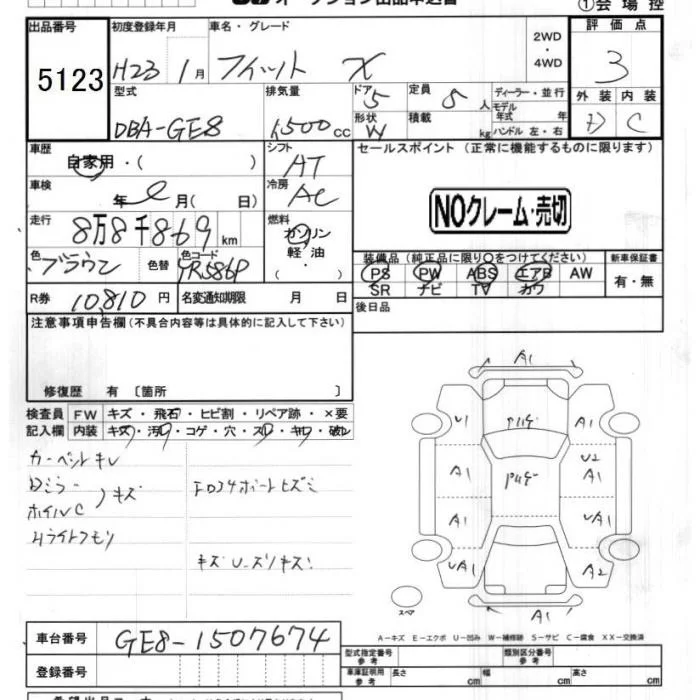 オークション出品申込書
①会場控
出品番号 初度登録年月 車名・グレード 2WD ・ 4WD 評価点
5123 H23 1月 フィット X 3
型式 排気量 ドア 定員 ディーラー・並行 外装 内装
DBA-GE8 1500cc 5 5人 モデル年式 年 D C
形状 積載 kg ハンドル 左・右
W
車歴 シフト セールスポイント (正常に機能するものに限ります)
自家用・( ) AT
車検 冷房
年 月( 日) AC NOクレーム・売切
走行 燃料
8万8千869km ガソリン・軽油・( )
色 色替 色コード 装備品(純正品に限り○をつけてください) 新車保証書
ブラウン YR586P PS PW ABS エアB AW 有・無
SR ナビ TV カワ
R券 10,810円 名変通知期限 月 日 後日品
注意事項申告欄(不具合内容等は具体的に記入して下さい)
修復歴 有 〔箇所 〕
検査員 FW キズ・飛石・ヒビ割・リペア跡・×要
記入欄 内装 キズ・汚レ・コゲ・穴・スレ・キレ・破レ
A1
U1 A1
A1 U2 A1
A1 UA1
UA1 A2
A1
スペア
Dミラー キズ
ホイルC
Hライトクモリ
A-キズ E-エクボ U-凹み W-補修跡 S-サビ C-腐食 XX-交換済
車台番号 GE8-1507674
型式指定番号 参考 類別区分番号 参考
登録番号 車庫証明用 参考 長さ cm 幅 cm 高さ cm